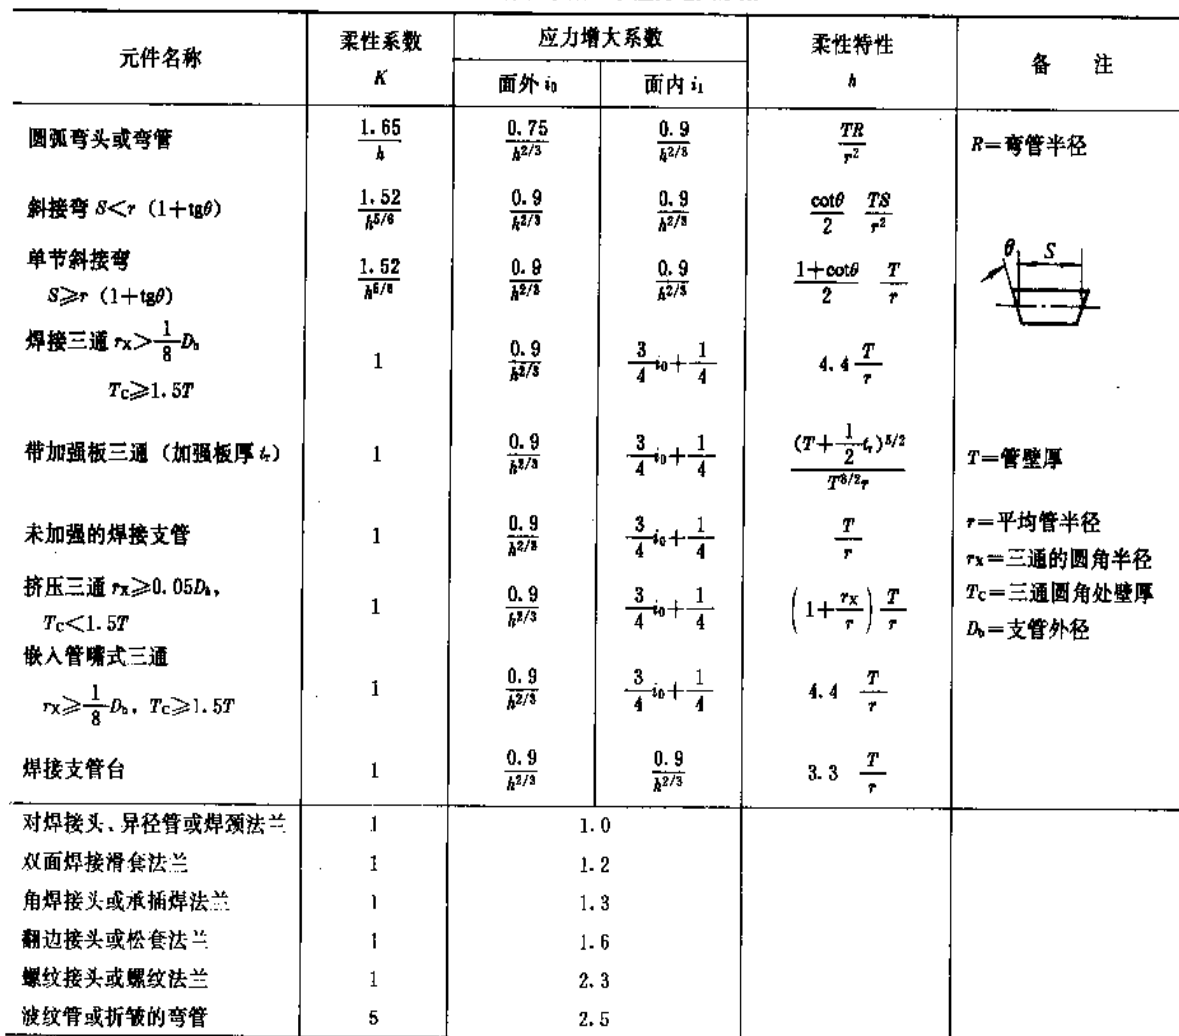 元件名称 柔性系数 K 应力增大系数 柔性特性 h 备 注
面外 i₀ 面内 i₁
圆弧弯头或弯管 1.65/h 0.75/h^{2/3} 0.9/h^{2/3} TR/r² R=弯管半径
斜接弯 S<r (1+tgθ) 1.52/h^{5/6} 0.9/h^{2/3} 0.9/h^{2/3} cotθ/2 TS/r²
单节斜接弯
S≥r (1+tgθ) 1.52/h^{5/6} 0.9/h^{2/3} 0.9/h^{2/3} 1+cotθ/2 T/r
θ S
焊接三通 r_X>1/8 D_b
T_C≥1.5T 1 0.9/h^{2/3} 3/4 i₀+1/4 4.4 T/r
带加强板三通 (加强板厚 t_r) 1 0.9/h^{2/3} 3/4 i₀+1/4 (T+1/2 t_r)^{5/2}/T^{3/2}r T=管壁厚
未加强的焊接支管 1 0.9/h^{2/3} 3/4 i₀+1/4 T/r r=平均管半径
r_X=三通的圆角半径
挤压三通 r_X≥0.05D_b,
T_C<1.5T 1 0.9/h^{2/3} 3/4 i₀+1/4 (1+r_X/r) T/r T_C=三通圆角处壁厚
D_b=支管外径
嵌入管嘴式三通
r_X≥1/8 D_b, T_C≥1.5T 1 0.9/h^{2/3} 3/4 i₀+1/4 4.4 T/r
焊接支管台 1 0.9/h^{2/3} 0.9/h^{2/3} 3.3 T/r
对焊接头、异径管或焊颈法兰 1 1.0
双面焊接滑套法兰 1 1.2
角焊接头或承插焊法兰 1 1.3
翻边接头或松套法兰 1 1.6
螺纹接头或螺纹法兰 1 2.3
波纹管或折皱的弯管 5 2.5